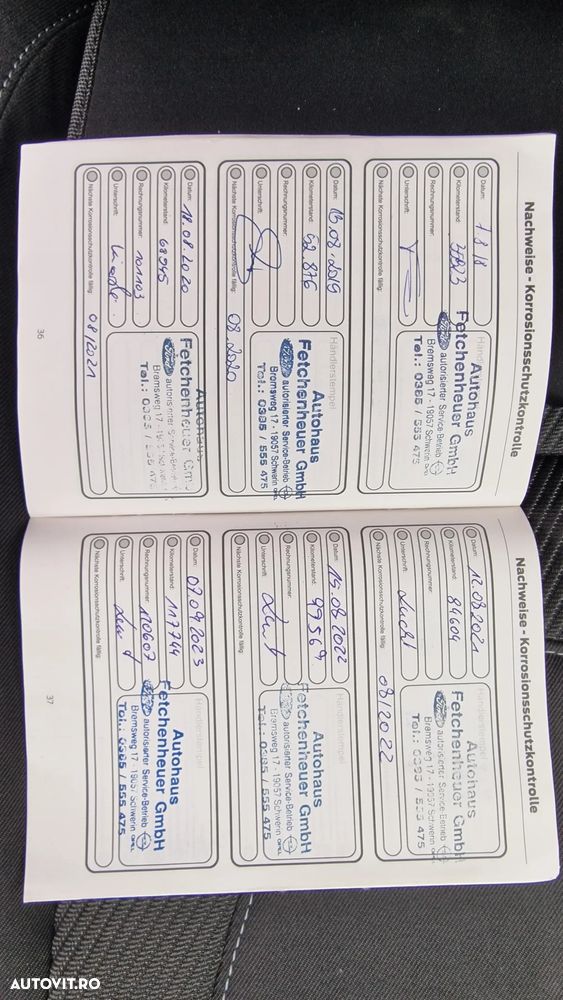 Nachweise - Korrosionsschutzkontrolle
Datum: 7 8 18
Kilometerstand:
Rechnungsnummer:
Unterschrift:
Nächste Korrosionsschutzkontrolle fällig:
Autohaus
Fetchenheuer GmbH
autorisierter Service-Betrieb
Bremsweg 17 - 19057 Schwerin OPEL
Tel.: 0385 / 555 475
Datum: 15.08.2019
Kilometerstand: 52.876
Rechnungsnummer:
Unterschrift:
Nächste Korrosionsschutzkontrolle fällig: 08.2020
Händlerstempel
Autohaus
Fetchenheuer GmbH
autorisierter Service-Betrieb
Bremsweg 17 - 19057 Schwerin OPEL
Tel.: 0385 / 555 475
Datum: 18.08.2020
Kilometerstand: 68945
Rechnungsnummer: 101103
Unterschrift:
Nächste Korrosionsschutzkontrolle fällig: 08/2021
Autohaus
Fetchenheuer GmbH
autorisierter Service-Betrieb
Bremsweg 17 - 19057 Schwerin
Tel.: 0385 / 555 475
36
Nachweise - Korrosionsschutzkontrolle
Datum: 12.08.2021
Kilometerstand: 84604
Rechnungsnummer:
Unterschrift:
Nächste Korrosionsschutzkontrolle fällig: 08/2022
Händlerstempel
Autohaus
Fetchenheuer GmbH
autorisierter Service-Betrieb
Bremsweg 17 - 19057 Schwerin OPEL
Tel.: 0385 / 555 475
Datum: 15.08.2022
Kilometerstand: 99569
Rechnungsnummer:
Unterschrift:
Nächste Korrosionsschutzkontrolle fällig:
Händlerstempel
Autohaus
Fetchenheuer GmbH
autorisierter Service-Betrieb
Bremsweg 17 - 19057 Schwerin OPEL
Tel.: 0385 / 555 475
Datum: 07.09.2023
Kilometerstand: 117744
Rechnungsnummer: 120607
Unterschrift:
Nächste Korrosionsschutzkontrolle fällig:
Händlerstempel
Autohaus
Fetchenheuer GmbH
autorisierter Service-Betrieb
Bremsweg 17 - 19057 Schwerin OPEL
Tel.: 0385 / 555 475
37
AUTOVIT.RO